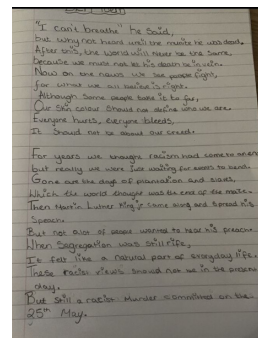 "I can't breathe" he said,
but why not heard until the minute he was dead.
After this, the world will never be the same.
because we must not let his death be in vein.
Now on the news we see people fight,
for what we all believe is right.
Although some people take it to far,
Our skin colour should not define who we are.
Everyone hurts, everyone bleeds.
It should not be about our creed.
For years we thought racism had come to an end
but really we were just waiting for to bend.
Gone are the days of plantation and slaves,
Which the world thought was the end of the
Then Martin Luther King jr came along and spread his
Speach.
But not alot of people wanted to hear his preach.
When segregation was still rife,
It felt like a natural part of everyday life.
These racist views should not be in the present
day.
But still a racist murder committed on the
25th May.